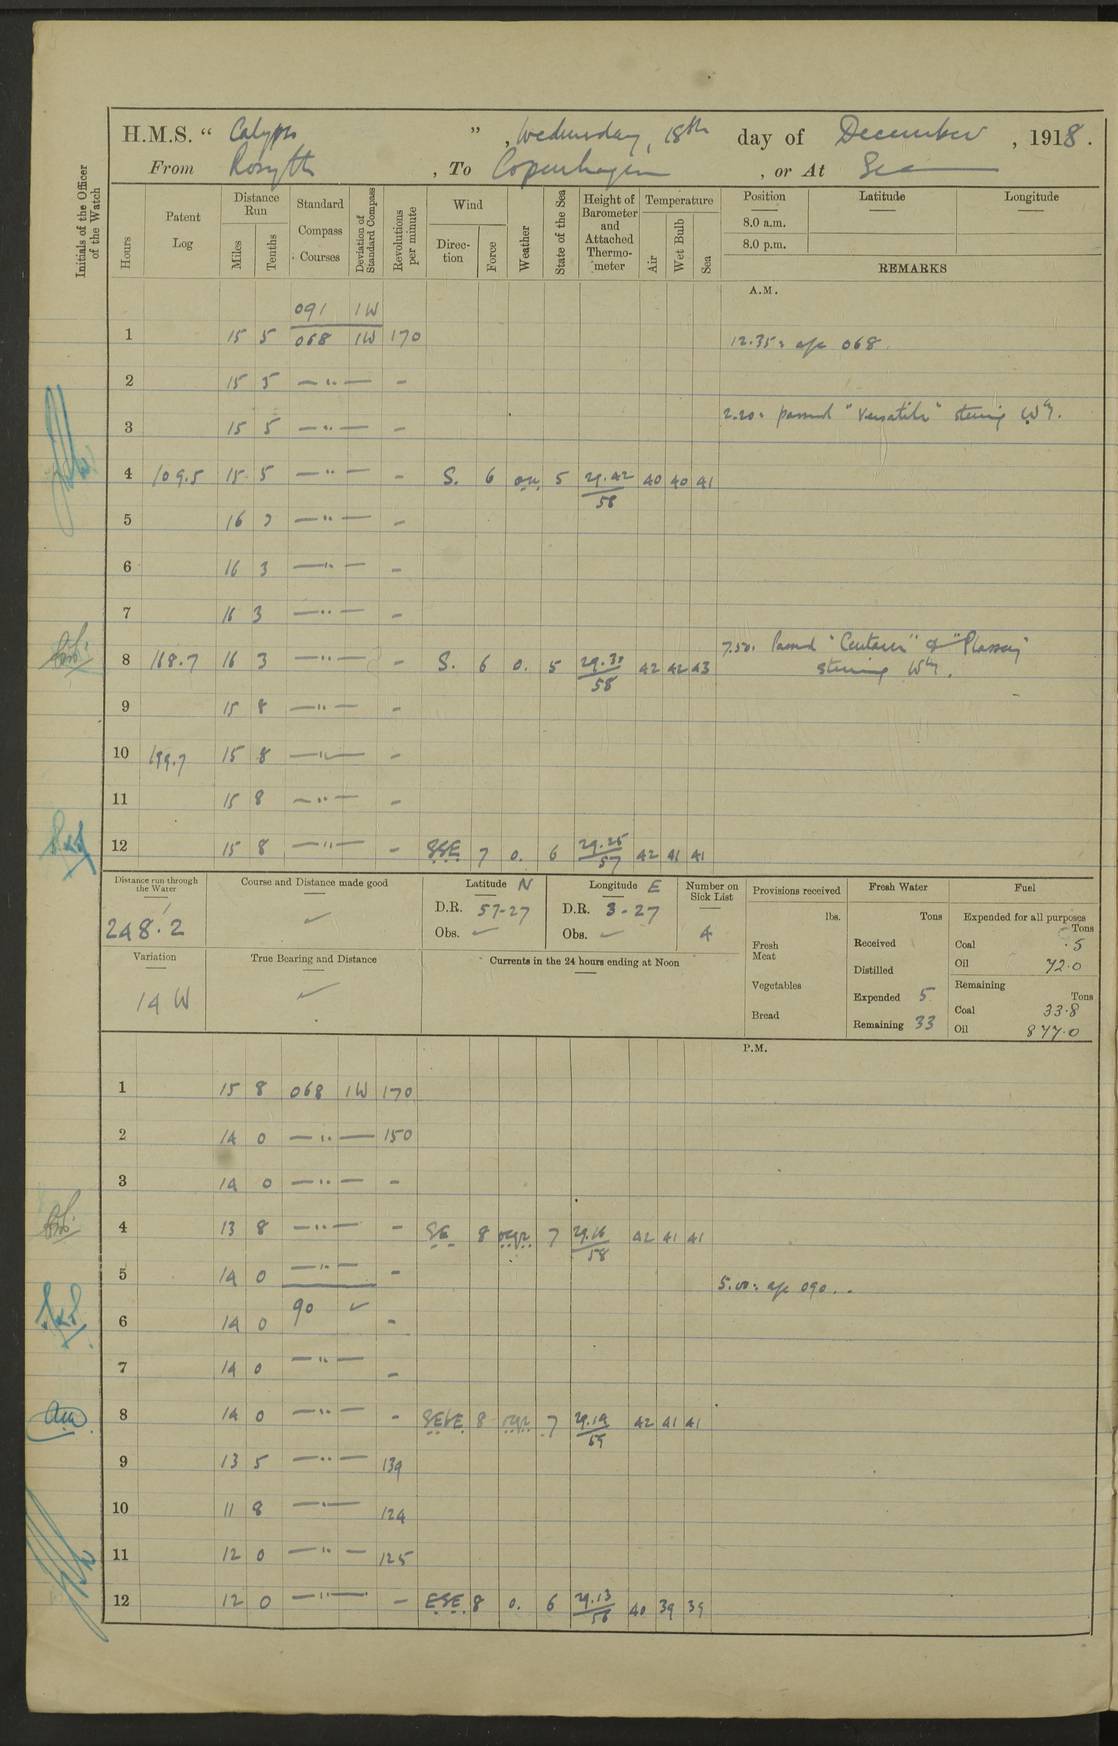 H.M.S. “ Calypso ”, Wednesday, 18th day of December, 1918.
From Rosyth, To Copenhagen, or At Sea
Initials of the Officer of the Watch
Hours
Patent Log
Distance Run
Miles
Tenths
Standard Compass Courses
Deviation of Standard Compass
Revolutions per minute
Wind
Direction
Force
Weather
State of the Sea
Height of Barometer and Attached Thermometer
Temperature
Air
Wet Bulb
Sea
Position
Latitude
Longitude
8.0 a.m.
8.0 p.m.
REMARKS
A.M.
091 1W
1 15 5 068 1W 170 12.35: a/c 068.
2 15 5 — " — -
2.20: passed "Versatile" steering Wly.
3 15 5 — " — -
4 109.5 15 5 — " — - S. 6 5 29.42 40 40 41
58
5 16 — " — -
6 16 3 — " — -
7 16 3 — " — -
7.50. Passed "Centaur" & "Plassey"
8 168.7 16 3 — " — - S. 6 o. 5 42 42 43 steering Wly.
58
9 15 8 — " — -
10 199.7 15 8 — " — -
11 15 8 — " — -
12 15 8 — " — - SSE 7 o. 6 29.25 42 41 41
57
Distance run through the Water
248.2
Course and Distance made good
✓
Latitude N
D.R. 57-27
Obs. ✓
Longitude E
D.R. 3-27
Obs. ✓
Number on Sick List
4
Provisions received
lbs.
Fresh Meat
Vegetables
Bread
Fresh Water
Tons
Received
Distilled
Expended 5
Remaining 33
Fuel
Expended for all purposes
Tons
Coal .5
Oil 72.0
Remaining
Tons
Coal 33.8
Oil 877.0
Variation
14 W
True Bearing and Distance
✓
Currents in the 24 hours ending at Noon
P.M.
1 15 8 068 1W 170
2 14 0 — " — 150
3 14 0 — " — -
4 13 8 — " — - SE 8 oqr 7 29.16 42 41 41
58
5 14 0 — " — - 5.00: a/c 090..
6 14 0 90 ✓ -
7 14 0 — " — -
8 14 0 — " — - SEbE 8 oqr 7 29.19 42 41 41
59
9 13 5 — " — 139
10 11 8 — " — 124
11 12 0 — " — 125
12 12 0 — " — - ESE 8 o. 6 29.13 40 39 39